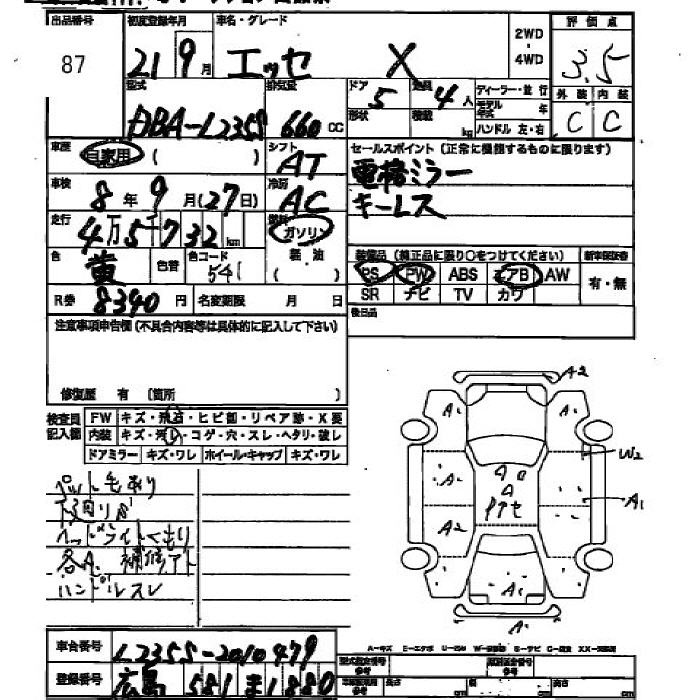 出品番号 初度登録年月 車名・グレード 2WD・4WD 評価点
87 21 9月 エッセ X 3.5
型式 排気量 ドア 定員 ディーラー・並行 外装 内装
DBA-L235S 660cc 5 4人 モデル年式 年 C C
形状 積載 kg ハンドル 左・右
車歴 自家用 ( ) シフト AT セールスポイント(正常に機能するものに限ります)
車検 8年9月(27日) 冷房 AC 電格ミラー
キーレス
走行 4万5千732km 燃料 ガソリン 軽油 ( )
色 黄 色替 色コード 541
装備品(純正品に限り○をつけてください) 新車保証書
PS PW ABS エアB AW 有・無
SR ナビ TV カワ
R券 8340円 名変期限 月 日 後日品
注意事項申告欄(不具合内容等は具体的に記入して下さい)
修復歴 有 (箇所 )
検査員記入欄 FW キズ・飛石・ヒビ割・リペア跡・X要
内装 キズ・汚レ・コゲ・穴・スレ・ヘタリ・破レ
ドアミラー キズ・ワレ ホイール・キャップ キズ・ワレ
ペット毛あり
下廻りサビ
ヘッドライトくもり
各A、補修アト
ハンドルスレ
A2
A1 A1
W2
A1 A1
A2
A1
A1
車台番号 L235S-2010479
登録番号 広島 581 ま1880
型式指定番号 類別区分番号
長さ cm 幅 cm 高さ cm